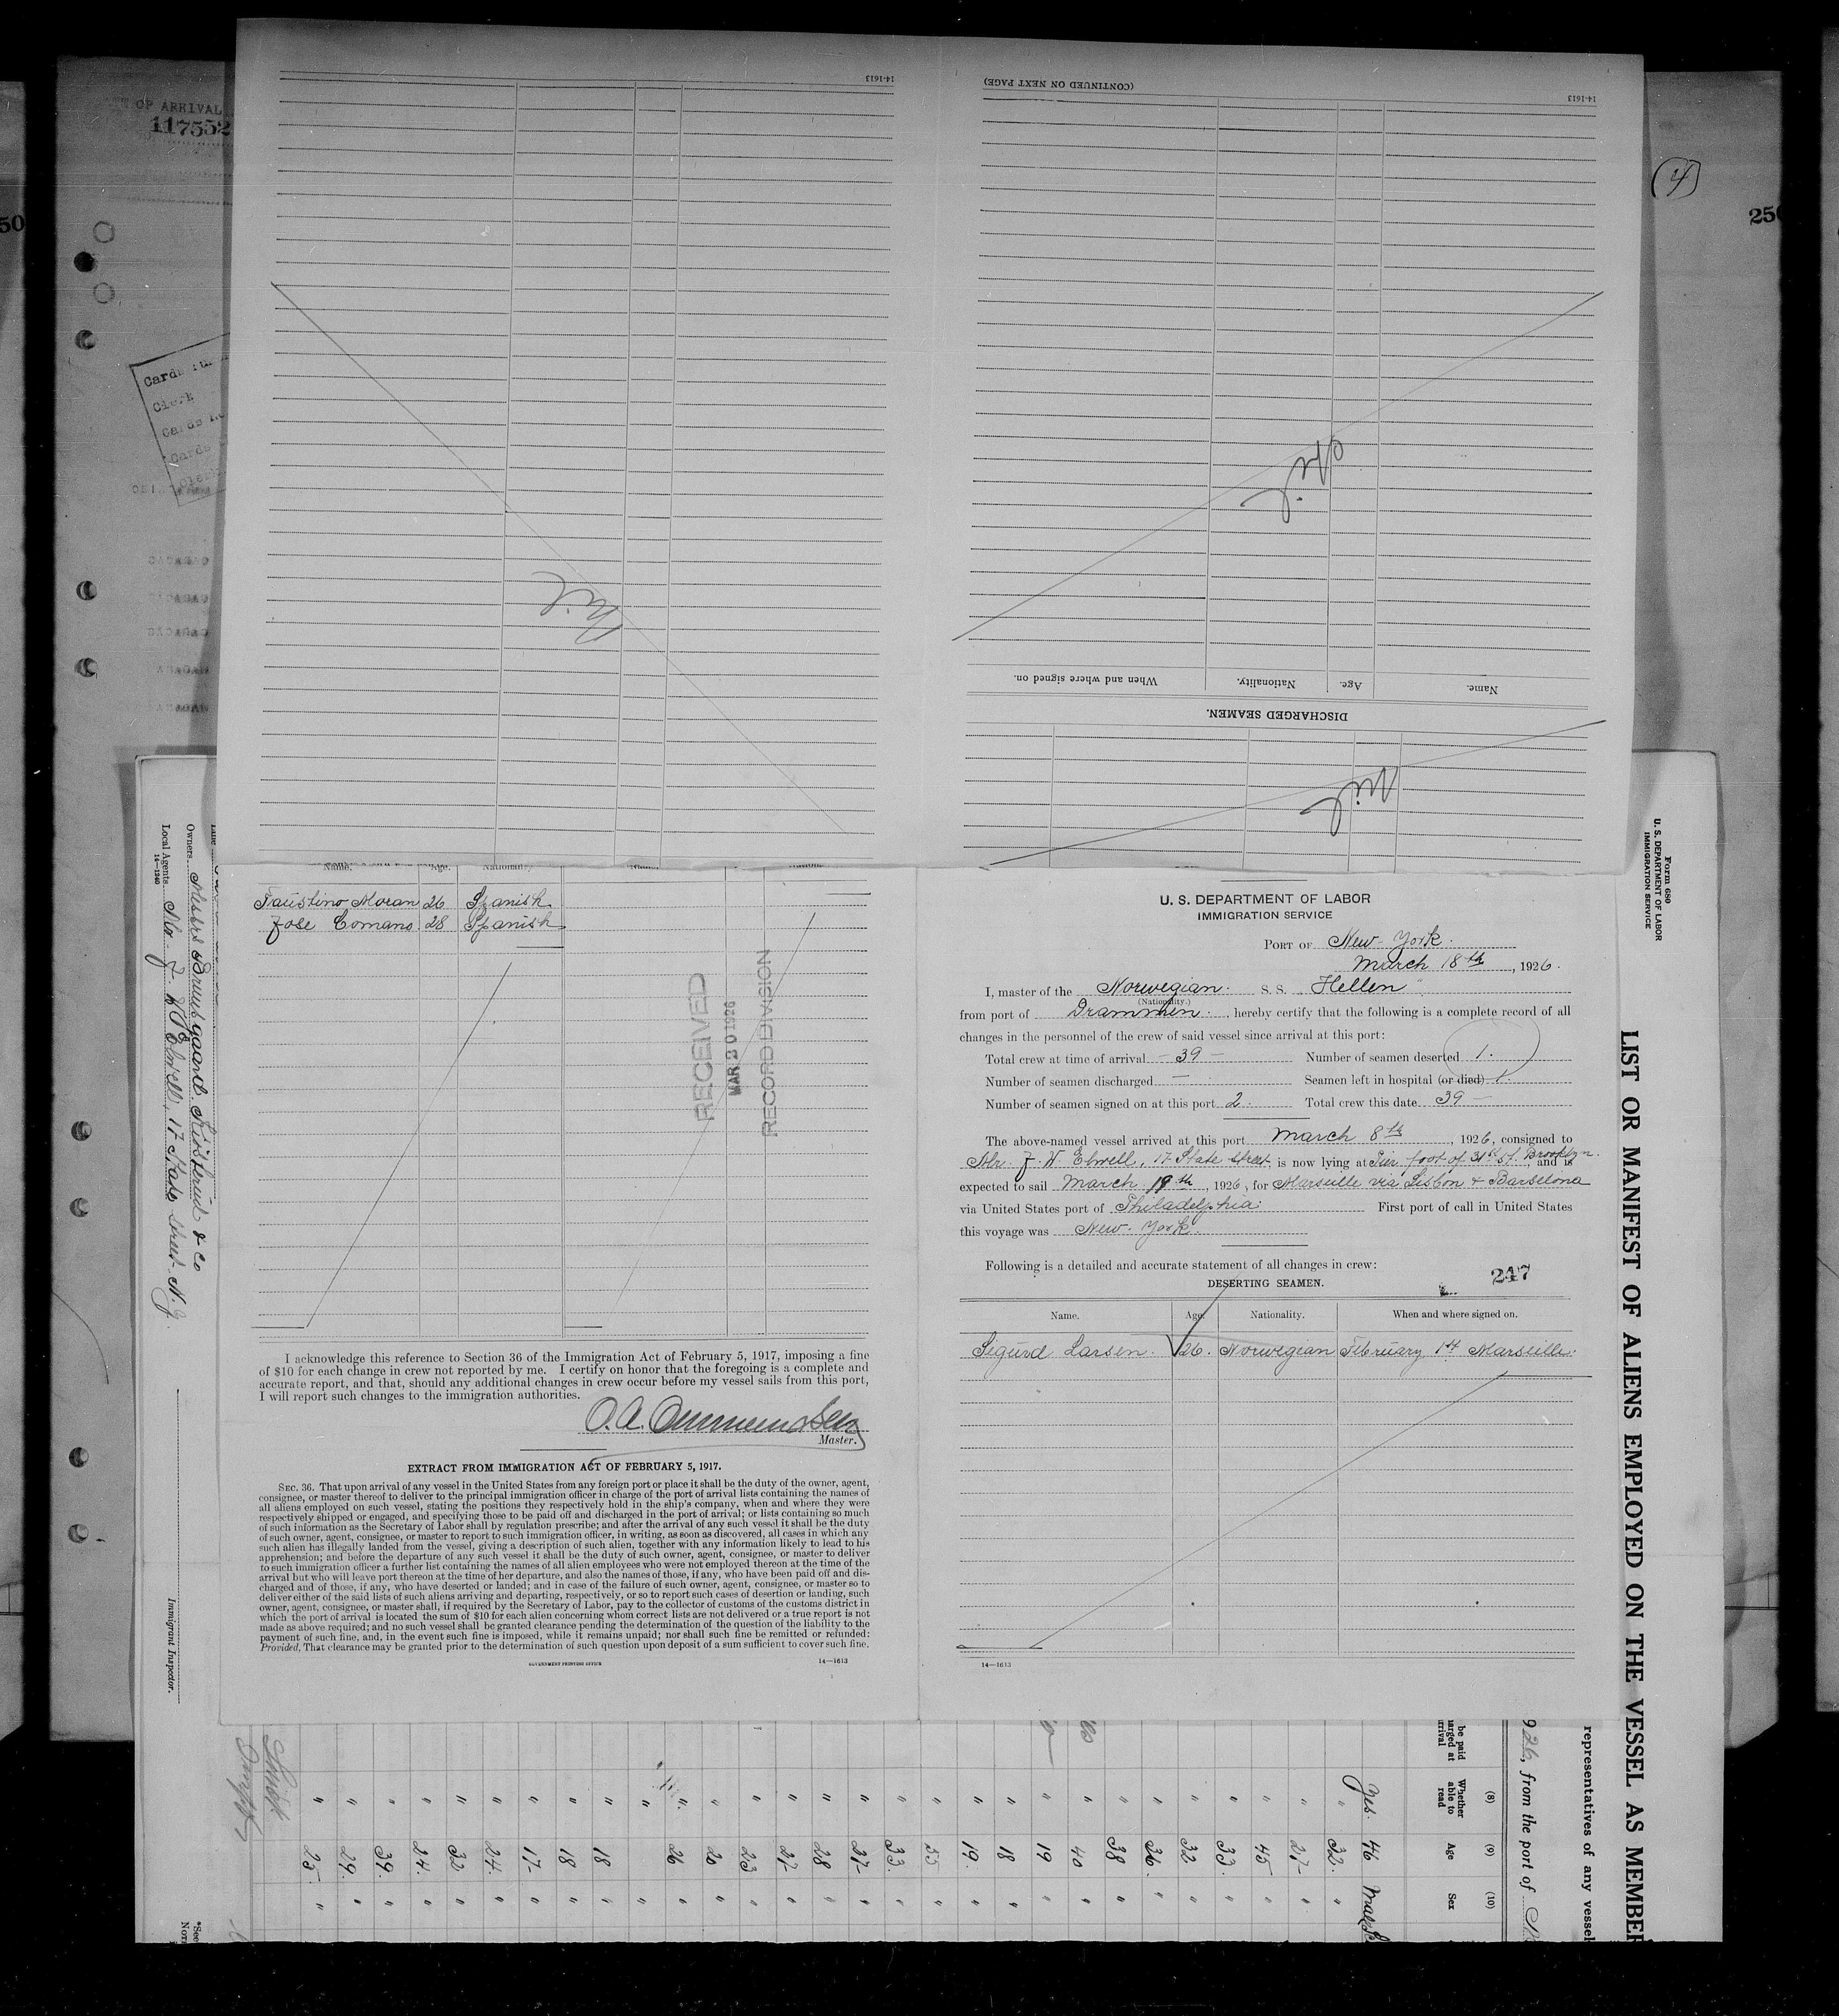 50
OF ARRIVAL
117552
(4)
250
14-1613
(CONTINUED ON NEXT PAGE)
14-1613
Nil
Nil
When and where signed on.
Nationality.
Age.
Name.
DISCHARGED SEAMEN.
Nil
Cards
Clerk
Cards
Cards
Owners
Messrs
Kristerud & Co
Local Agents
Mr. J. W. Elwell, 17 State street N. Y.
14-1240
Immigrant Inspector.
Faustino Moran 26 Spanish
Jose Comans 28 Spanish
RECEIVED
MAR 20 1926
RECORD DIVISION
I acknowledge this reference to Section 36 of the Immigration Act of February 5, 1917, imposing a fine
of $10 for each change in crew not reported by me. I certify on honor that the foregoing is a complete and
accurate report, and that, should any additional changes in crew occur before my vessel sails from this port,
I will report such changes to the immigration authorities.
O. A.
Master.
EXTRACT FROM IMMIGRATION ACT OF FEBRUARY 5, 1917.
SEC. 36. That upon arrival of any vessel in the United States from any foreign port or place it shall be the duty of the owner, agent,
consignee, or master thereof to deliver to the principal immigration officer in charge of the port of arrival lists containing the names of
all aliens employed on such vessel, stating the positions they respectively hold in the ship's company, when and where they were
respectively shipped or engaged, and specifying those to be paid off and discharged in the port of arrival; or lists containing so much
of such information as the Secretary of Labor shall by regulation prescribe; and after the arrival of any such vessel it shall be the duty
of such owner, agent, consignee, or master to report to such immigration officer, in writing, as soon as discovered, all cases in which any
such alien has illegally landed from the vessel, giving a description of such alien, together with any information likely to lead to his
apprehension; and before the departure of any such vessel it shall be the duty of such owner, agent, consignee, or master to deliver
to such immigration officer a further list containing the names of all alien employees who were not employed thereon at the time of the
arrival but who will leave port thereon at the time of her departure, and also the names of those, if any, who have been paid off and dis-
charged and of those, if any, who have deserted or landed; and in case of the failure of such owner, agent, consignee, or master so to
deliver either of the said lists of such aliens arriving and departing, respectively, or so to report such cases of desertion or landing, such
owner, agent, consignee, or master shall, if required by the Secretary of Labor, pay to the collector of customs of the customs district in
which the port of arrival is located the sum of $10 for each alien concerning whom correct lists are not delivered or a true report is not
made as above required; and no such vessel shall be granted clearance pending the determination of the question of the liability to the
payment of such fine, and, in the event such fine is imposed, while it remains unpaid; nor shall such fine be remitted or refunded:
Provided, That clearance may be granted prior to the determination of such question upon deposit of a sum sufficient to cover such fine.
GOVERNMENT PRINTING OFFICE
14-1613
U. S. DEPARTMENT OF LABOR
IMMIGRATION SERVICE
PORT OF New-York.
March 18th, 1926.
I, master of the Norwegian. S. S. Hellen
(Nationality.)
from port of Drammen., hereby certify that the following is a complete record of all
changes in the personnel of the crew of said vessel since arrival at this port:
Total crew at time of arrival - 39 - Number of seamen deserted 1.
Number of seamen discharged - Seamen left in hospital (or died) 1.
Number of seamen signed on at this port 2. Total crew this date 39 -
The above-named vessel arrived at this port March 8th, 1926, consigned to
Mr. J. W Elwell, 17 State street, is now lying at Pier foot of 31st st. Brooklyn., and is
expected to sail March 19th, 1926, for Marseille via Lisbon & Barselona
via United States port of Philadelphia. First port of call in United States
this voyage was New-York.
Following is a detailed and accurate statement of all changes in crew:
247
DESERTING SEAMEN.
Name. Age. Nationality. When and where signed on.
Sigurd Larsen. 26. Norwegian February 1st Marseille.
14-1613
Form 680
U. S. DEPARTMENT OF LABOR
IMMIGRATION SERVICE
LIST OR MANIFEST OF ALIENS EMPLOYED ON THE VESSEL AS MEMBER
representatives of any vessel
926, from the port of
be paid
arged at
rrival
(8)
Whether
able to
read
(9)
Age
(10)
Sex
Yes. 46 Male
" 32. "
" 27 "
" 45 "
" 33. "
" 32 "
" 36. "
" 38 "
" 40 "
" 19 "
" 18 "
" 19. "
" 55 "
" 33. "
" 27 "
" 28 "
" 27 "
" 23 "
" 20 "
" 26 "
" "
" 18 "
" 18 "
" 17 "
" 24. "
" 32 "
" 24. "
" 39. "
" 29. "
" 25. "